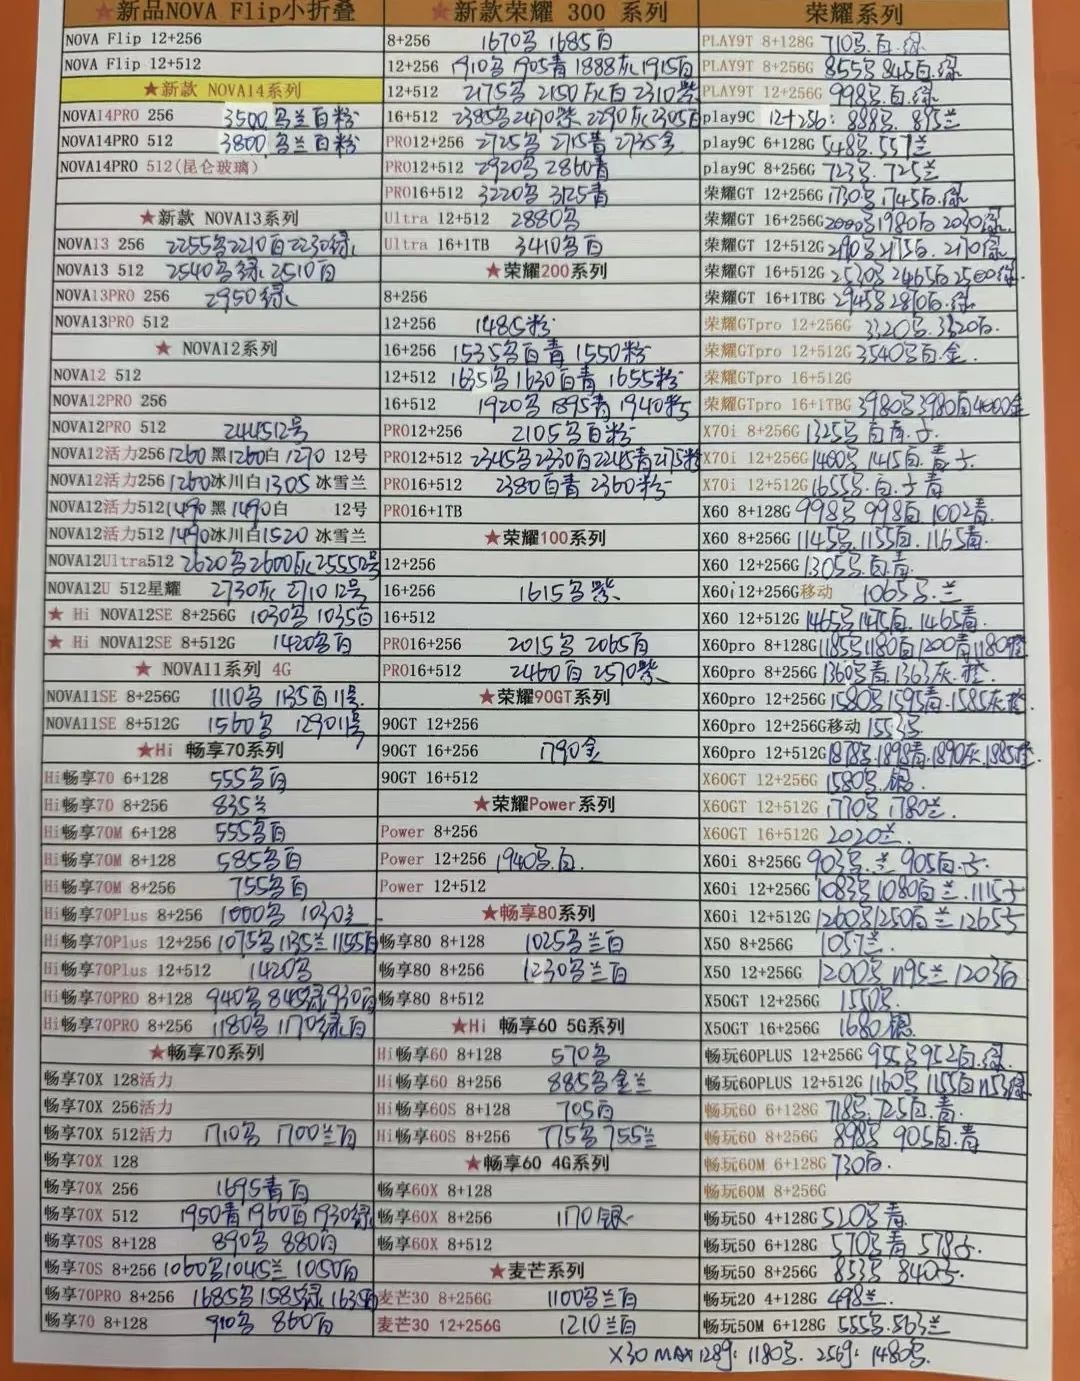 ★新品NOVA Flip小折叠
NOVA Flip 12+256
NOVA Flip 12+512
★新款 NOVA14系列
NOVA14PRO 256 3500鸟兰白粉
NOVA14PRO 512 3800鸟兰白粉
NOVA14PRO 512(昆仑玻璃)
★新款 NOVA13系列
NOVA13 256 2255鸟2210白2230绿
NOVA13 512 2540鸟绿 2510白
NOVA13PRO 256 2950绿
NOVA13PRO 512
★ NOVA12系列
NOVA12 512
NOVA12PRO 256
NOVA12PRO 512 244512号
NOVA12活力256 1260黑1260白1270 12号
NOVA12活力256 1260冰川白1305 冰雪兰
NOVA12活力512 1490黑1490白 12号
NOVA12活力512 1490冰川白1520 冰雪兰
NOVA12Ultra512 2620鸟2600灰255512号
NOVA12U 512星耀 2730灰 2710 12号
★ Hi NOVA12SE 8+256G 1030鸟 1035白
★ Hi NOVA12SE 8+512G 1420鸟白
★ NOVA11系列 4G
NOVA11SE 8+256G 1110鸟 1135白 11号
NOVA11SE 8+512G 1560鸟 129011号
★Hi 畅享70系列
Hi畅享70 6+128 555鸟白
Hi畅享70 8+256 835兰
Hi畅享70M 6+128 555鸟白
Hi畅享70M 8+128 585鸟白
Hi畅享70M 8+256 755鸟白
Hi畅享70Plus 8+256 1000鸟 1030兰
Hi畅享70Plus 12+256 1075鸟1135兰1155白
Hi畅享70Plus 12+512 1420鸟
Hi畅享70PRO 8+128 940鸟 845绿930白
Hi畅享70PRO 8+256 1180鸟 1170绿白
★畅享70系列
畅享70X 128活力
畅享70X 256活力
畅享70X 512活力 1710鸟 1700兰白
畅享70X 128
畅享70X 256 1695青白
畅享70X 512 1950青1960白1930绿
畅享70S 8+128 890鸟 880白
畅享70S 8+256 1060鸟1045兰 1050白
畅享70PRO 8+256 1685鸟1585绿1635白
畅享70 8+128 910鸟 860白
★新款荣耀 300 系列
8+256 1670鸟 1685白
12+256 1910鸟 1905青 1888灰 1915白
12+512 2175鸟 2150灰白 2310紫
16+512 2385鸟2470紫 2290灰2305白
PRO12+256 2725鸟 2715青 2735金
PRO12+512 2920鸟 2860青
PRO16+512 3220鸟 3125青
Ultra 12+512 2880鸟
Ultra 16+1TB 3410鸟白
★荣耀200系列
8+256
12+256 1485粉
16+256 1535鸟白青 1550粉
12+512 1635鸟1630白青 1655粉
16+512 1920鸟 1895青 1940粉
PRO12+256 2105鸟白粉
PRO12+512 2345鸟2330白2245青2175粉
PRO16+512 2380白青 2360粉
PRO16+1TB
★荣耀100系列
12+256
16+256 1615鸟紫
16+512
PRO16+256 2015鸟 2065白
PRO16+512 2460白 2570紫
★荣耀90GT系列
90GT 12+256
90GT 16+256 1790金
90GT 16+512
★荣耀Power系列
Power 8+256
Power 12+256 1940鸟.白.
Power 12+512
★畅享80系列
畅享80 8+128 1025鸟兰白
畅享80 8+256 1230鸟兰白
畅享80 8+512
★Hi 畅享60 5G系列
Hi畅享60 8+128 570鸟
Hi畅享60 8+256 885鸟金兰
Hi畅享60S 8+128 705白
Hi畅享60S 8+256 775鸟755兰
★畅享60 4G系列
畅享60X 8+128
畅享60X 8+256 1170银
畅享60X 8+512
★麦芒系列
麦芒30 8+256G 1100鸟兰白
麦芒30 12+256G 1210兰白
荣耀系列
PLAY9T 8+128G 710鸟.白.绿
PLAY9T 8+256G 855鸟845白.绿
PLAY9T 12+256G 998鸟.白.绿
play9C 12+256: 888鸟. 895兰
play9C 6+128G 548鸟.557兰
play9C 8+256G 723鸟. 725兰
荣耀GT 12+256G 1730鸟1745白.绿
荣耀GT 16+256G 2000鸟1980白 2030绿
荣耀GT 12+512G 2190鸟2175白. 2170绿
荣耀GT 16+512G 2530鸟 2465白2500绿
荣耀GT 16+1TBG 2945鸟2810白.绿
荣耀GTpro 12+256G 3320鸟.3320白.
荣耀GTpro 12+512G 3540鸟白.金.
荣耀GTpro 16+512G
荣耀GTpro 16+1TBG 3980鸟3980白4000金
X70i 8+256G 1325鸟 白 青.子.
X70i 12+256G 1400鸟 1415白.青子.
X70i 12+512G 1655鸟.白.子青
X60 8+128G 998鸟 998白 1002青.
X60 8+256G 1145鸟.1155白. 1165青.
X60 12+256G 1305鸟.白青.
X60i12+256G移动 1065鸟.兰
X60 12+512G 1465鸟1475白. 1465青.
X60pro 8+128G 1185鸟1180白1200青1180橙
X60pro 8+256G 1360鸟青.1363灰.橙.
X60pro 12+256G 1580鸟1595青.1585灰橙.
X60pro 12+256G移动 1553鸟.
X60pro 12+512G 1878鸟.1898青.1890灰.1885橙.
X60GT 12+256G 1580鸟.银.
X60GT 12+512G 1770鸟 1780兰.
X60GT 16+512G 2020兰.
X60i 8+256G 903鸟.兰 905白.子.
X60i 12+256G 1083鸟1080白兰.1115子
X60i 12+512G 1260鸟1250白兰 1265子
X50 8+256G 1057兰.
X50 12+256G 1200鸟 1195兰 1203白
X50GT 12+256G 1550鸟.
X50GT 16+256G 1680银.
畅玩60PLUS 12+256G 955鸟952白.绿.
畅玩60PLUS 12+512G 1160鸟 1155白1153绿
畅玩60 6+128G 718鸟.725白.青.
畅玩60 8+256G 898鸟 905白.青
畅玩60M 6+128G 730白.
畅玩60M 8+256G
畅玩50 4+128G 520鸟青.
畅玩50 6+128G 570鸟青 578子.
畅玩50 8+256G 853鸟 840子.
畅玩20 4+128G 498兰.
畅玩50M 6+128G 555鸟.563兰
X30 MAX128g: 1180鸟. 256g: 1480鸟.